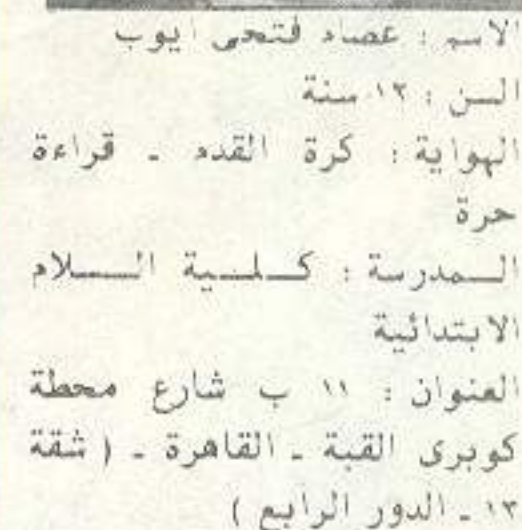 الاسم : عصام فتحى ايوب
السن : ١٢ سنة
الهواية : كرة القدم ـ قراءة
حرة
المدرسة : كلية السلام
الابتدائية
العنوان : ١١ ب شارع محطة
كوبرى القبة ـ القاهرة ـ ( شقة
١٣ ـ الدور الرابع )